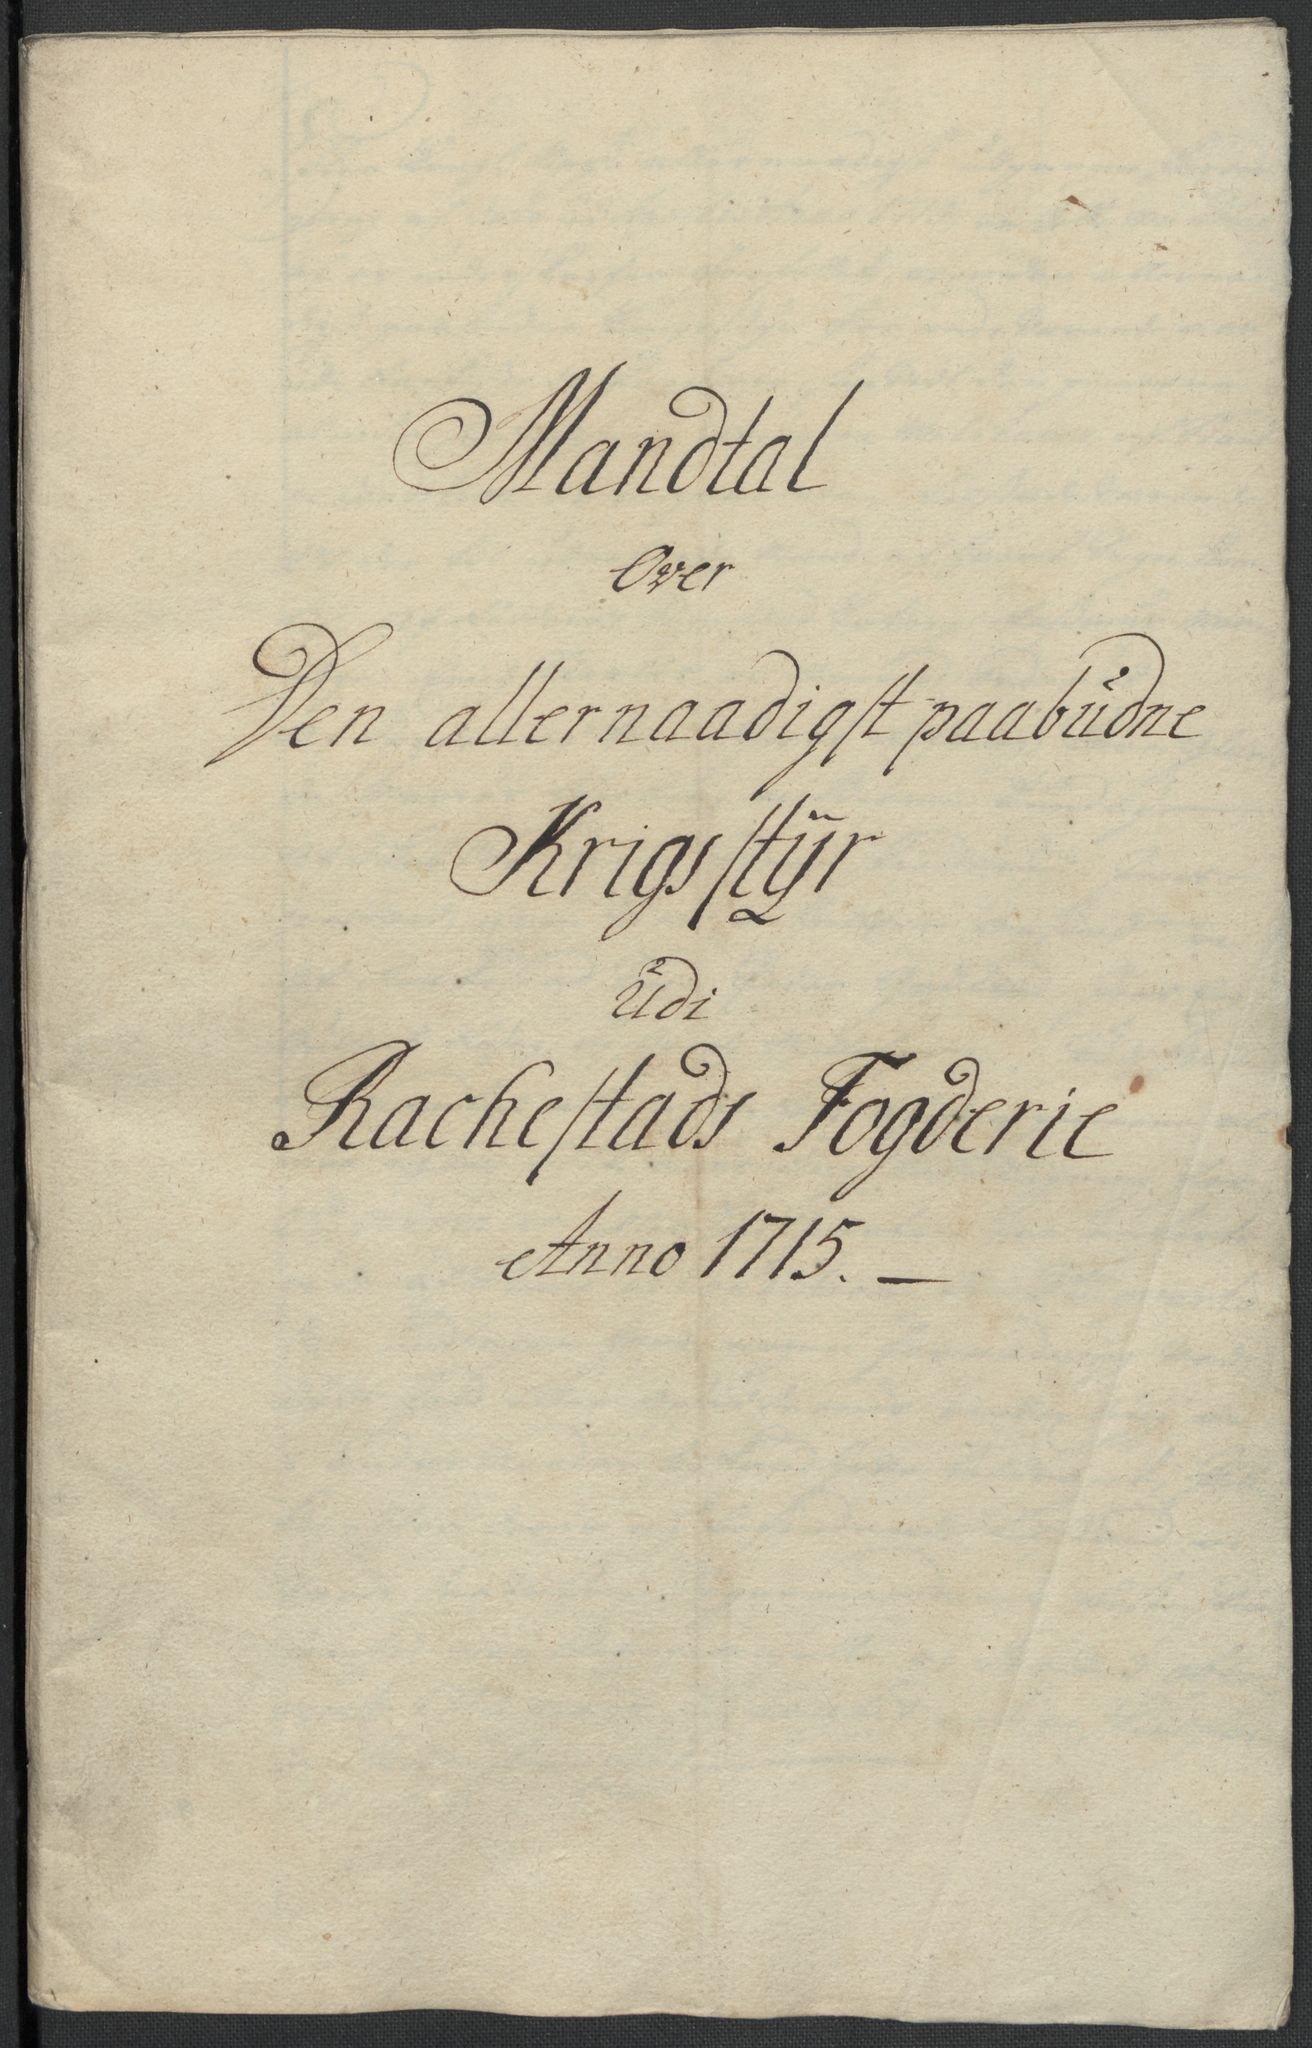 Mandtal
Over
Den allernaadigst paabudne
Krigsstÿr
Udi
Rachestads Fogderie
Anno 1715. —